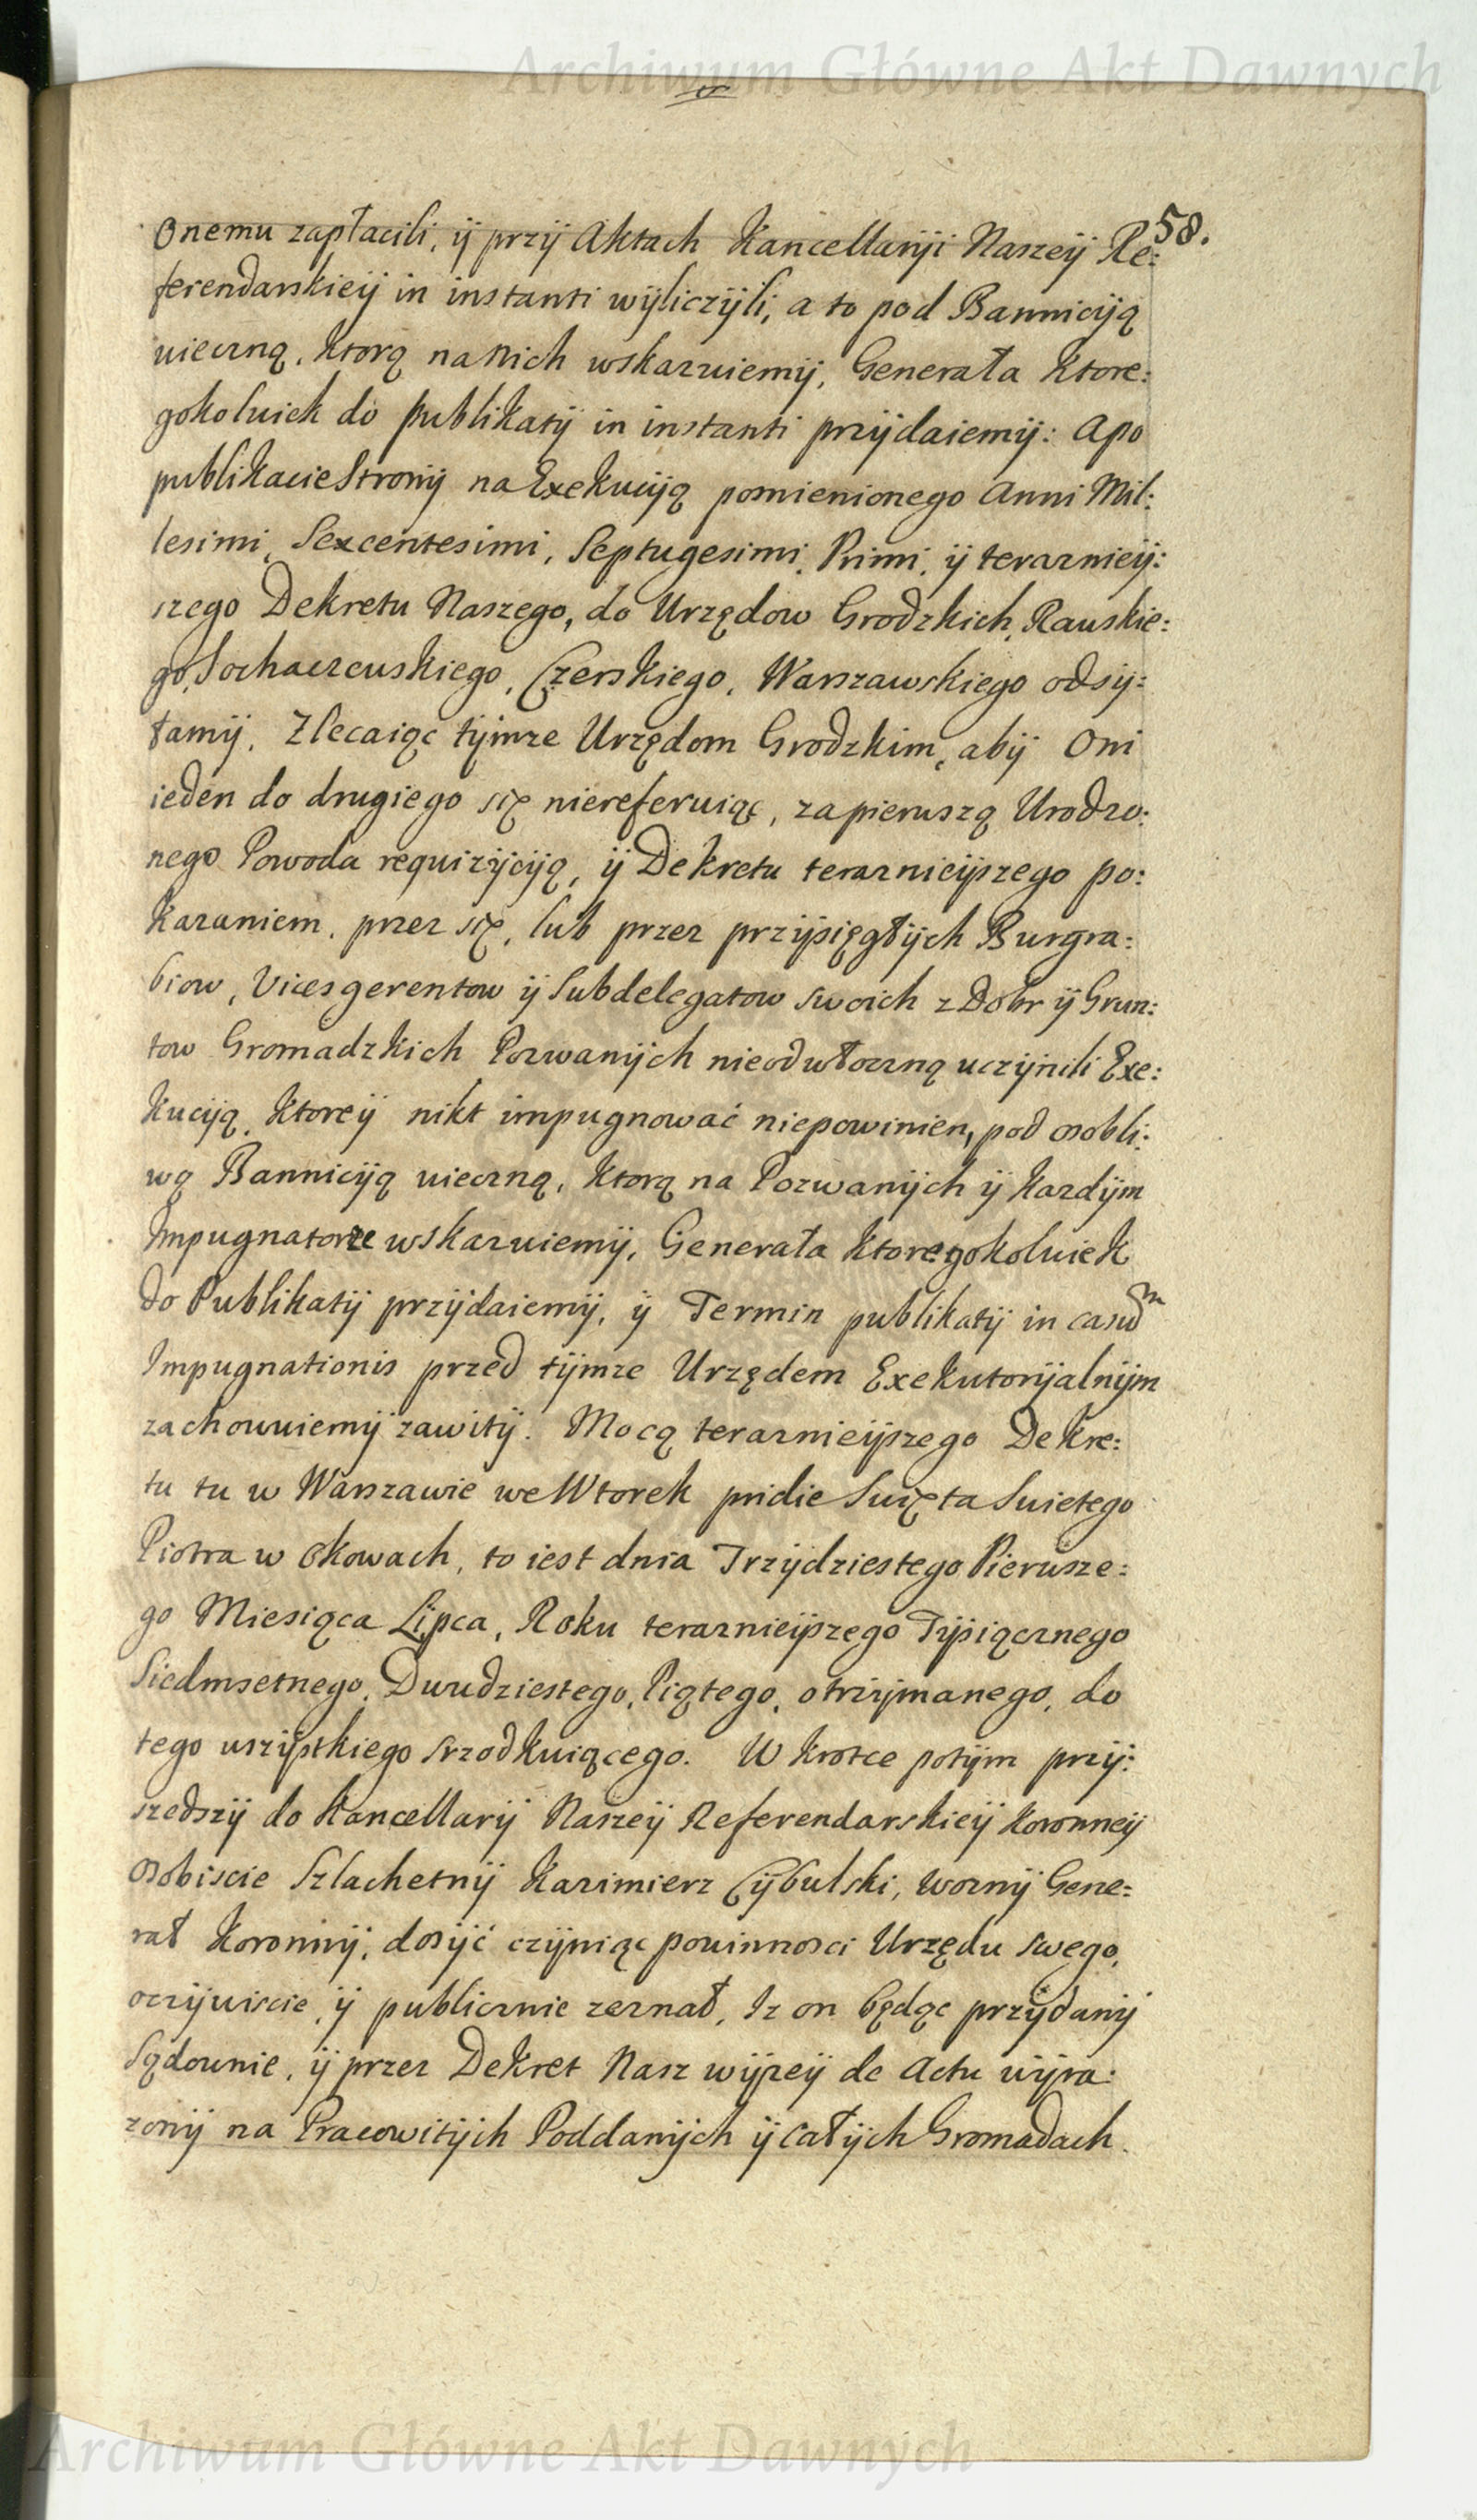 Archiwum Główne Akt Dawnych
58.
Onemu zapłacili, ÿ przÿ Aktach Kancellarÿi Naszeÿ Re:
ferendarskieÿ in instanti wÿliczÿli, a to pod Bannicÿą
wieczną, ktorą na nich wskazuiemÿ, Generała ktore:
gokolwiek do publikatÿ in instanti przÿdaiemÿ: A po
publikacie Stronÿ na Exekucÿą pomienionego Anni Mil:
lesimi, Sexcentesimi, Septugesimi, Primi, ÿ terazniey:
szego Dekretu Naszego, do Urzędow Grodzkich, Rawskie:
go, Sochaczewskiego, Czerskiego, Warszawskiego odsÿ:
łamÿ, Zlecaiąc tÿmze Urzędom Grodzkim, abÿ Oni
ieden do drugiego się niereferuiąc, za pierwszą Urodzo:
nego Powoda requizÿcÿą, ÿ Dekretu teraznieÿszego po:
kazaniem, przez się, lub przez przÿsięgłÿch Burgra:
biow, Vicesgerentow ÿ Subdelegatow swoich z Dobr ÿ Grun:
tow Gromadzkich Pozwanÿch nieodwłoczną uczÿnili Exe:
kucÿą, ktoreÿ nikt impugnować niepowinien, pod osobli:
wą Bannicÿą wieczną, ktorą na Pozwanÿch ÿ kazdÿm
Impugnatorze wskazuiemÿ, Generała ktoregokolwiek
do Publikatÿ przÿdaiemÿ, ÿ Termin publikatÿ in casu
Impugnationis przed tÿmze Urzędem Exekutorÿalnÿm
zachowuiemÿ zawitÿ. Mocą teraznieÿszego Dekre:
tu tu w Warszawie we Wtorek pridie Swięta Swietego
Piotra w Okowach, to iest dnia Trzÿdziestego Pierwsze:
go Miesiąca Lipca, Roku teraznieÿszego Tÿsiącznego
Siedmsetnego, Dwudziestego, Piątego, otrzÿmanego, do
tego wszÿstkiego srzodkuiącego. W krotce potÿm przÿ:
szedszÿ do Kancellarÿ Naszeÿ Referendarskieÿ Koronneÿ
osobiscie Szlachetnÿ Kazimierz Cÿbulski, woznÿ Gene:
rał Koronnÿ, dosÿć czÿniąc powinnosci Urzędu swego,
oczÿwiscie, ÿ publicznie zeznał, Iz on będąc przÿdanÿ
Sądownie, ÿ przez Dekret Nasz wÿzeÿ de Actu wÿra:
zonÿ na Pracowitÿch Poddanÿch ÿ całÿch Gromadach
Archiwum Główne Akt Dawnych